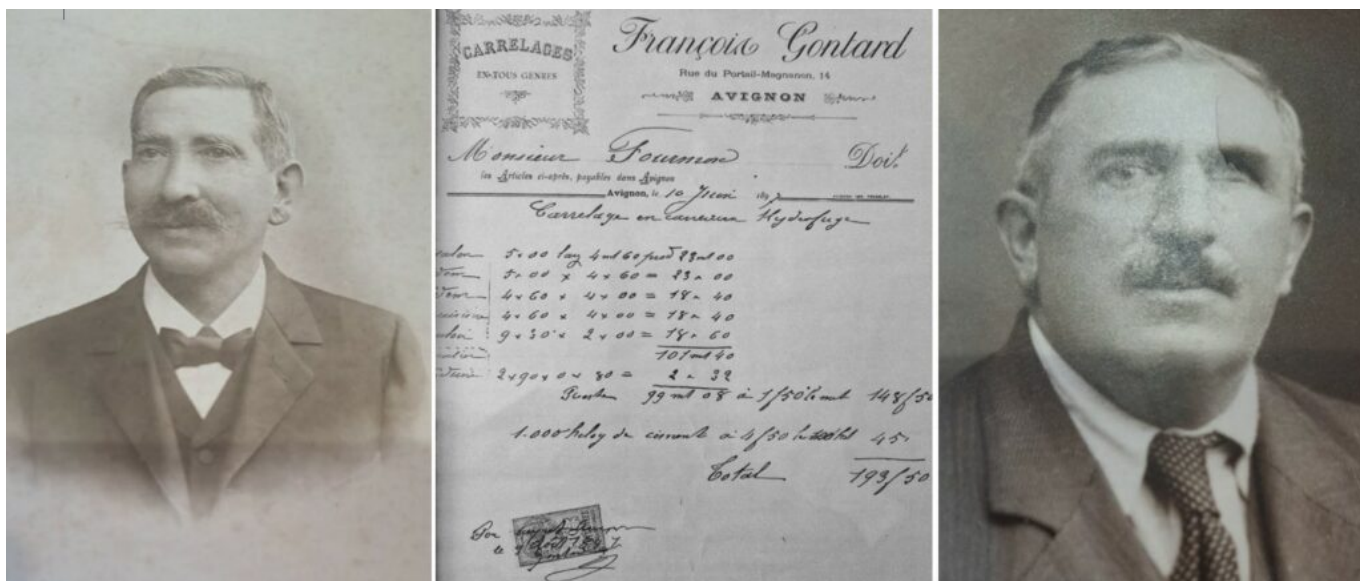 CARRELAGES
EN TOUS GENRES
François Gontard
Rue du Portail-Magnanen, 14
AVIGNON
Monsieur Fourmon Doit
les Articles ci-après, payables dans Avignon
Avignon, le 10 Juin 1897
Carrelage en carreaux Hydrofuge
5×00 larg 4mt60 prod 23mt00
5×00 × 4×60 = 23 " 00
4×60 × 4×00 = 18 " 40
4×60 × 4×00 = 18 " 40
9×30 × 2×00 = 18 " 60
101mt40
2×90×0×80 = 2 " 32
Reste 99mt08 à 1f50 le met 148f50
1.000 kilog de ciment à 4f50 45"
Total 193f50